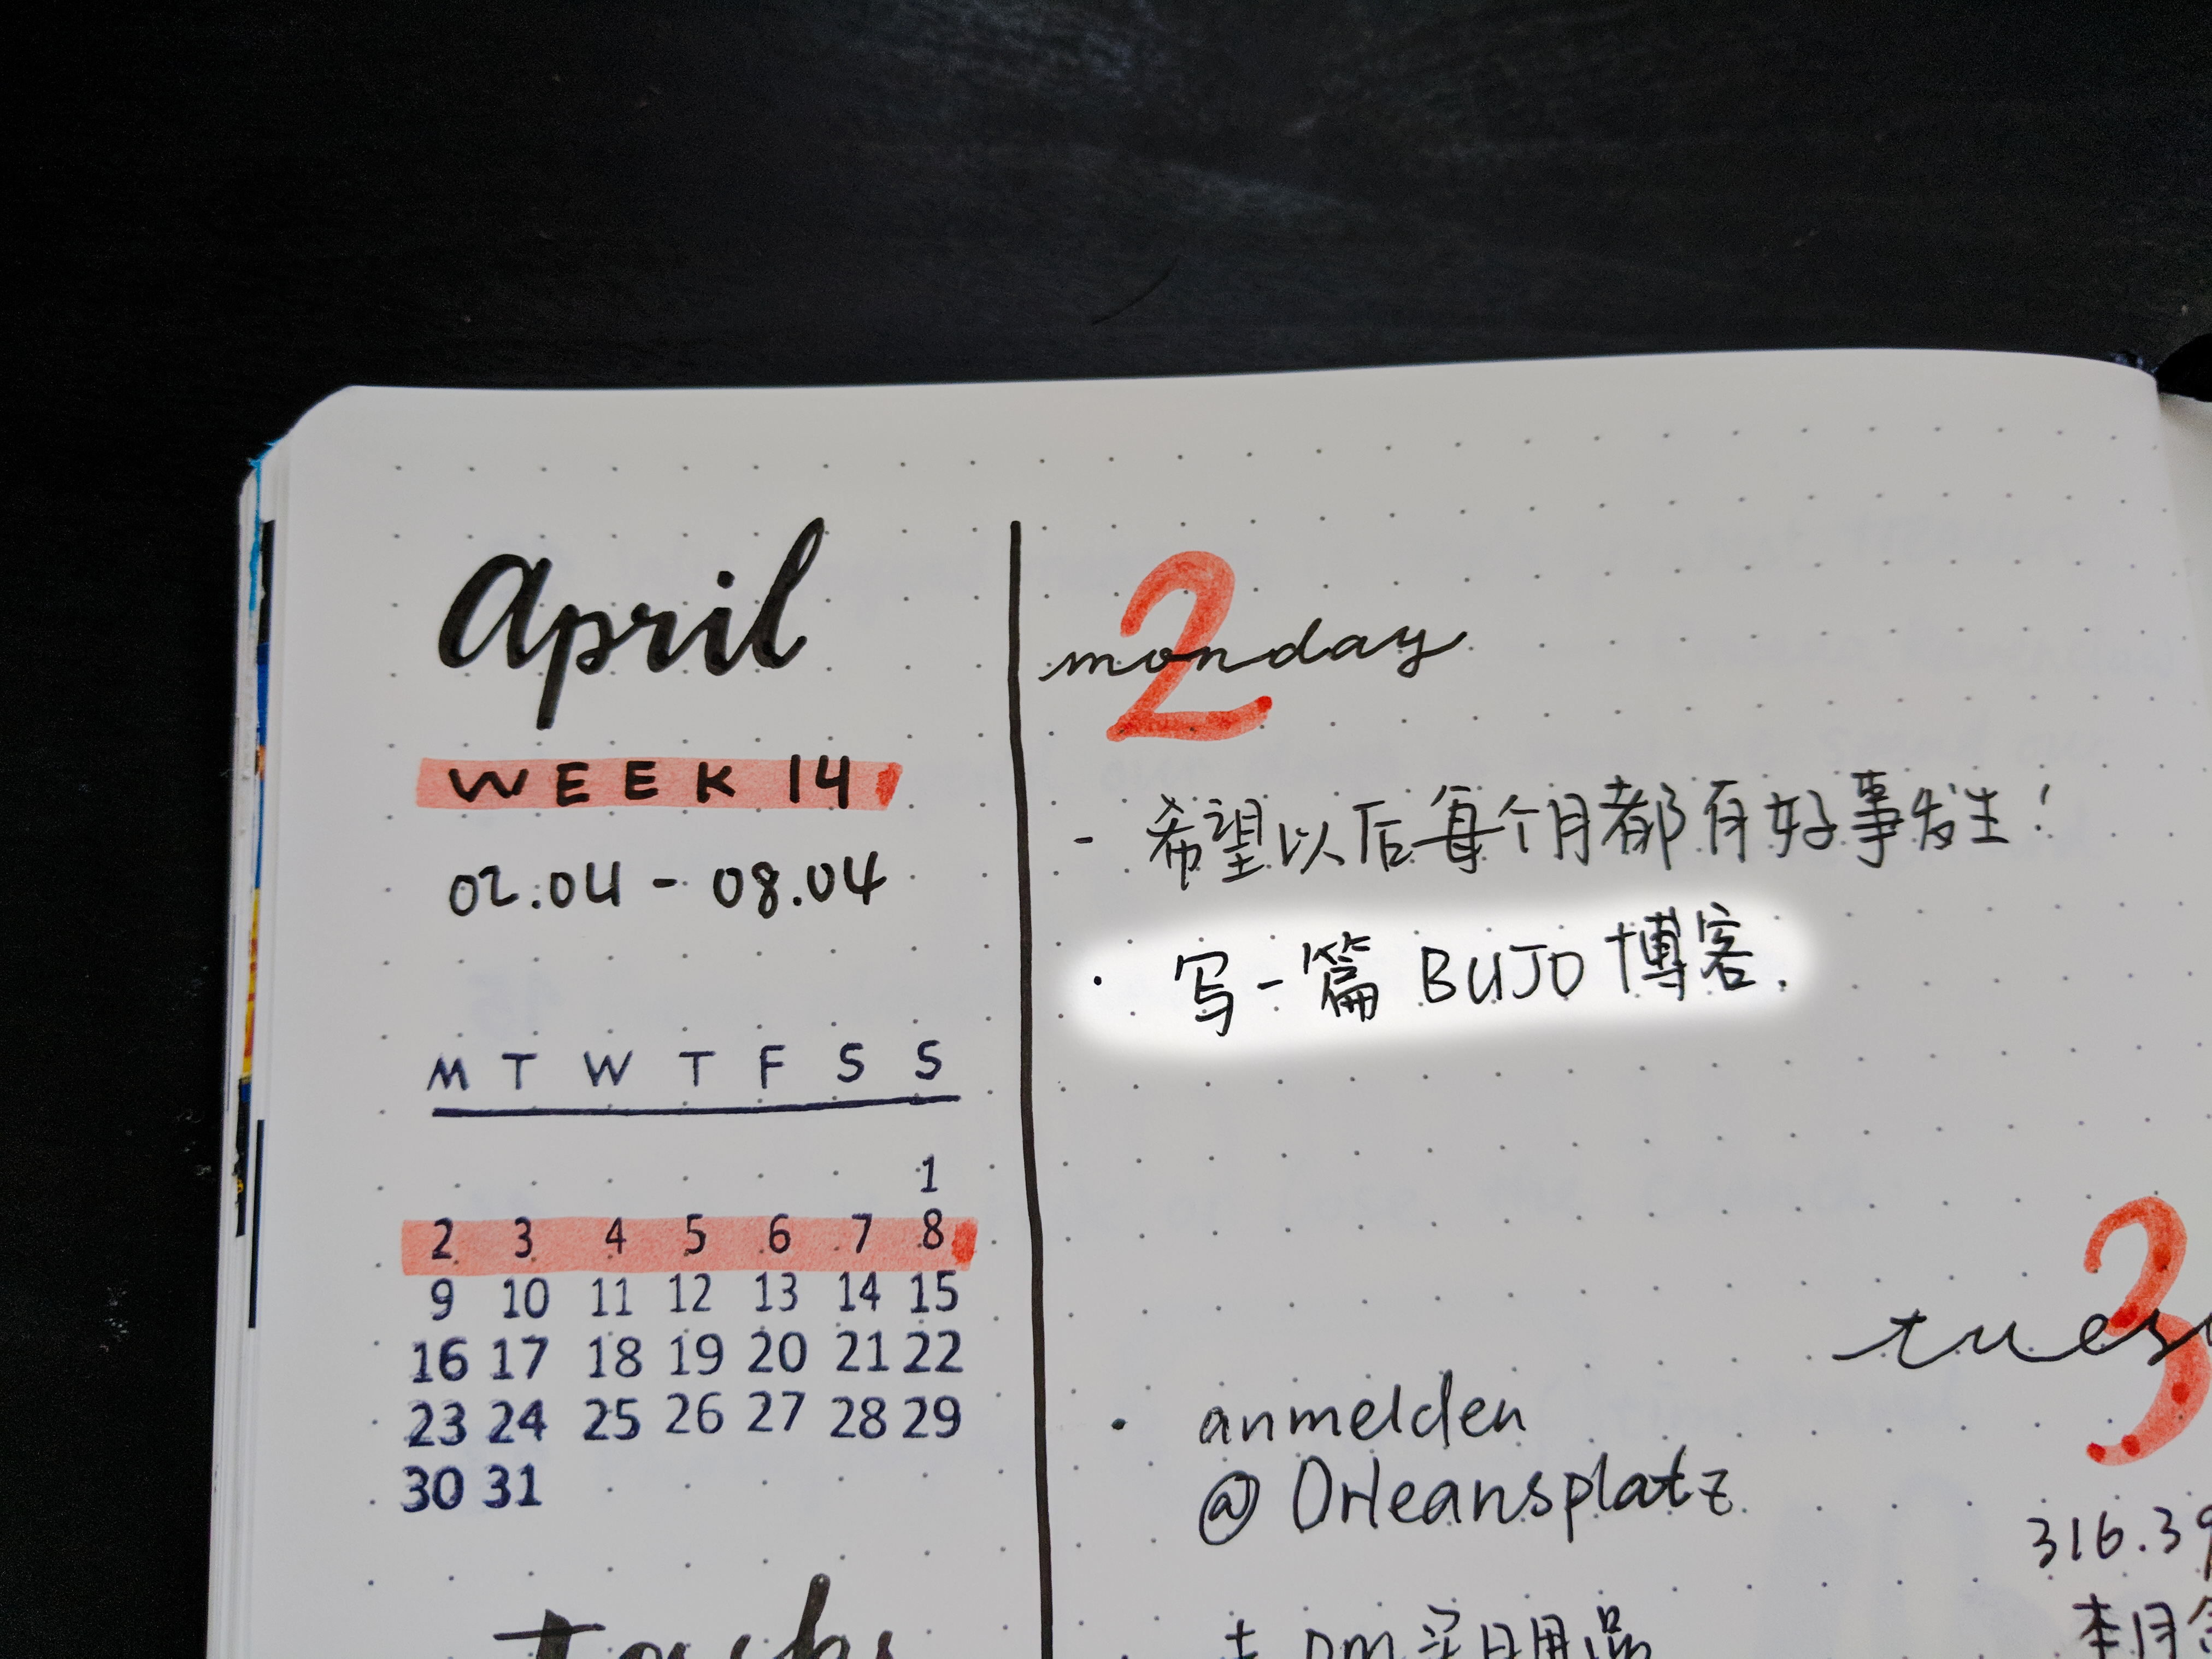 April
WEEK 14
02.04 - 08.04
M T W T F S S
1
2 3 4 5 6 7 8
9 10 11 12 13 14 15
16 17 18 19 20 21 22
23 24 25 26 27 28 29
30 31
Tasks
2
monday
- 希望以后每个月都有好事发生!
· 写一篇 BUJO 博客.
3
tues
· anmelden
@ Orleansplatz
316.39
· 去 DM 买日用品
本月